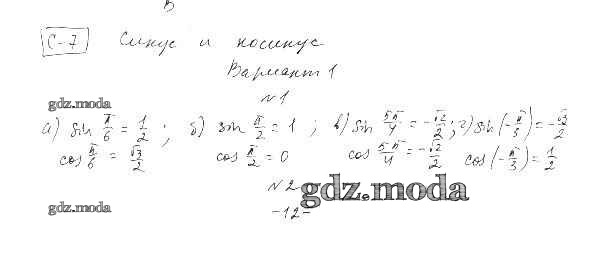 В
С-7 Синус и косинус
Вариант 1
N1
gdz.moda
а) sin π/6 = 1/2 ; б) sin π/2 = 1 ; в) sin 5π/4 = -√2/2 ; г) sin(-π/3) = -√3/2
cos π/6 = √3/2 cos π/2 = 0 cos 5π/4 = -√2/2 cos(-π/3) = 1/2
N2
gdz.moda
gdz.moda
-12-